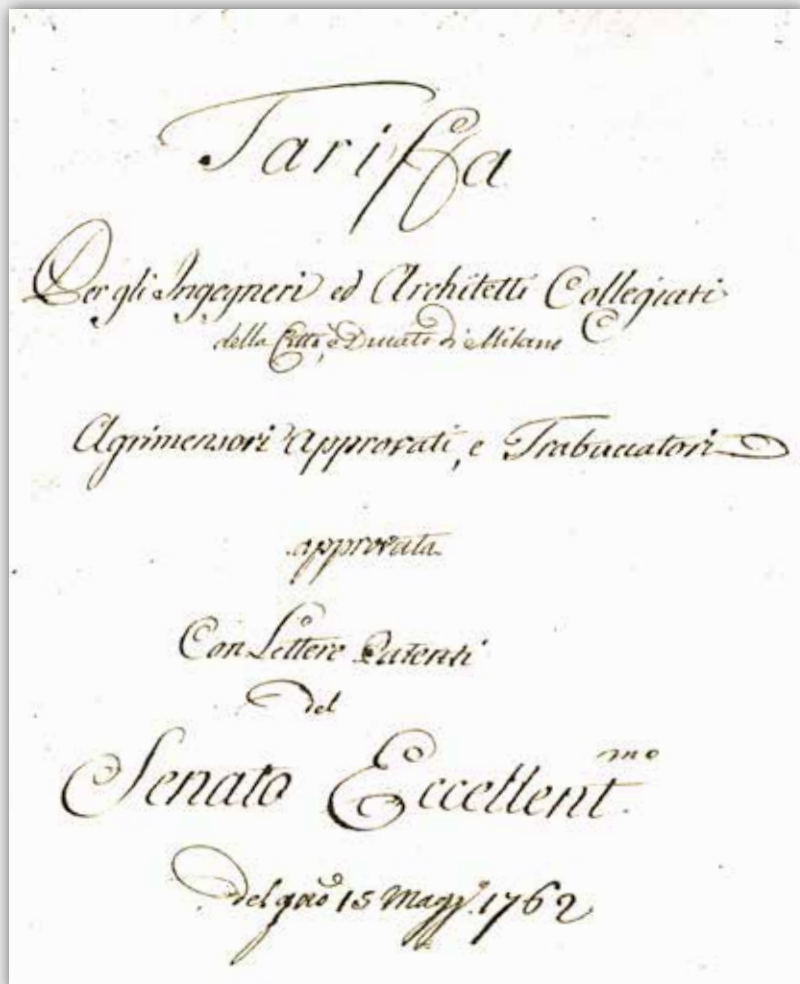 Tariffa
Per gli Ingegneri ed Architetti Collegiati
della Città, e Ducato di Milano
Agrimensori approvati, e Trabuccatori
approvata
Con Lettere Patenti
del
Senato Eccellent.mo
del gno 15 Magg.º 1762